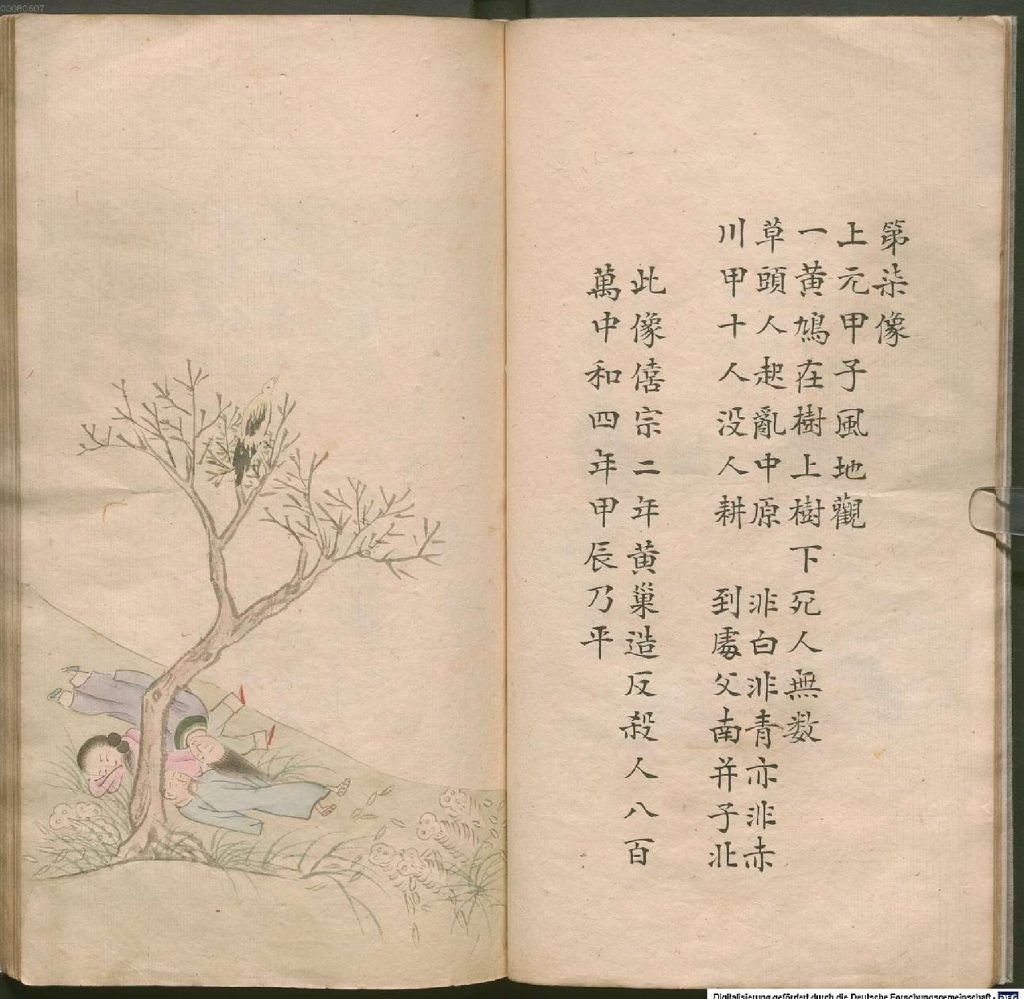 第柒像
上元甲子風地觀
一黃鳩在樹上樹下死人無数
草頭人起亂中原 非白非青亦非赤
川甲十人没人耕 到處父南并子北
此像僖宗二年黃巢造反殺人八百
萬中和四年甲辰乃平
00060607
Digitalisierung gefördert durch die Deutsche Forschungsgemeinschaft - DFG